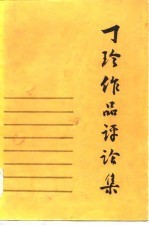 丁玲作品评论集